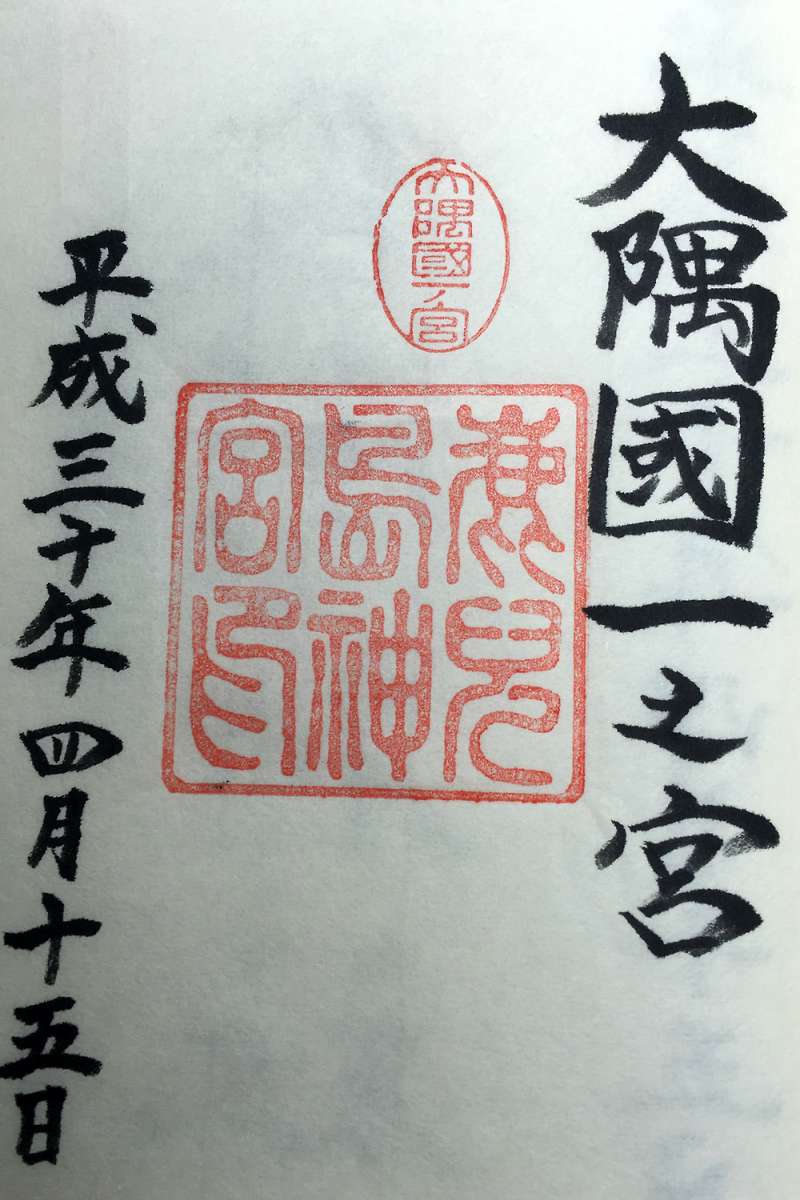 大隅國一之宮
大隅國一ノ宮
鹿兒
島神
宮印
平成三十年四月十五日